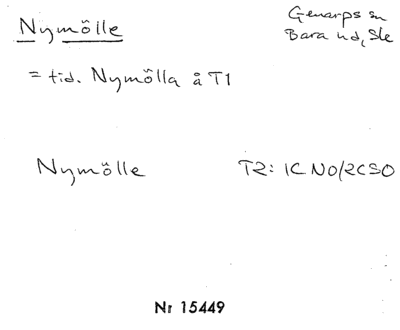 Nymölle
Genarps sn
Bara hd, Ske
= tid. Nymölla å T1
Nymölle
T2: 1C NO/2C SO
Nr 15449